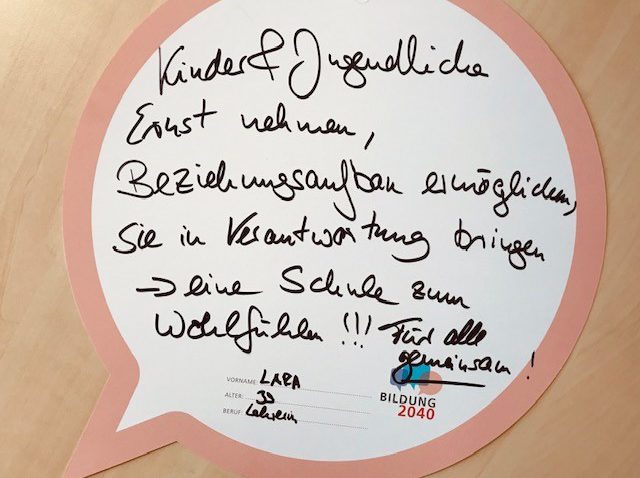 Kinder & Jugendliche
Ernst nehmen,
Beziehungsaufbau ermöglichen,
Sie in Verantwortung bringen
→ eine Schule zum
Wohlfühlen !!! Für alle
gemeinsam !
VORNAME: LARA
ALTER: 39
BERUF: Lehrerin
BILDUNG
2040